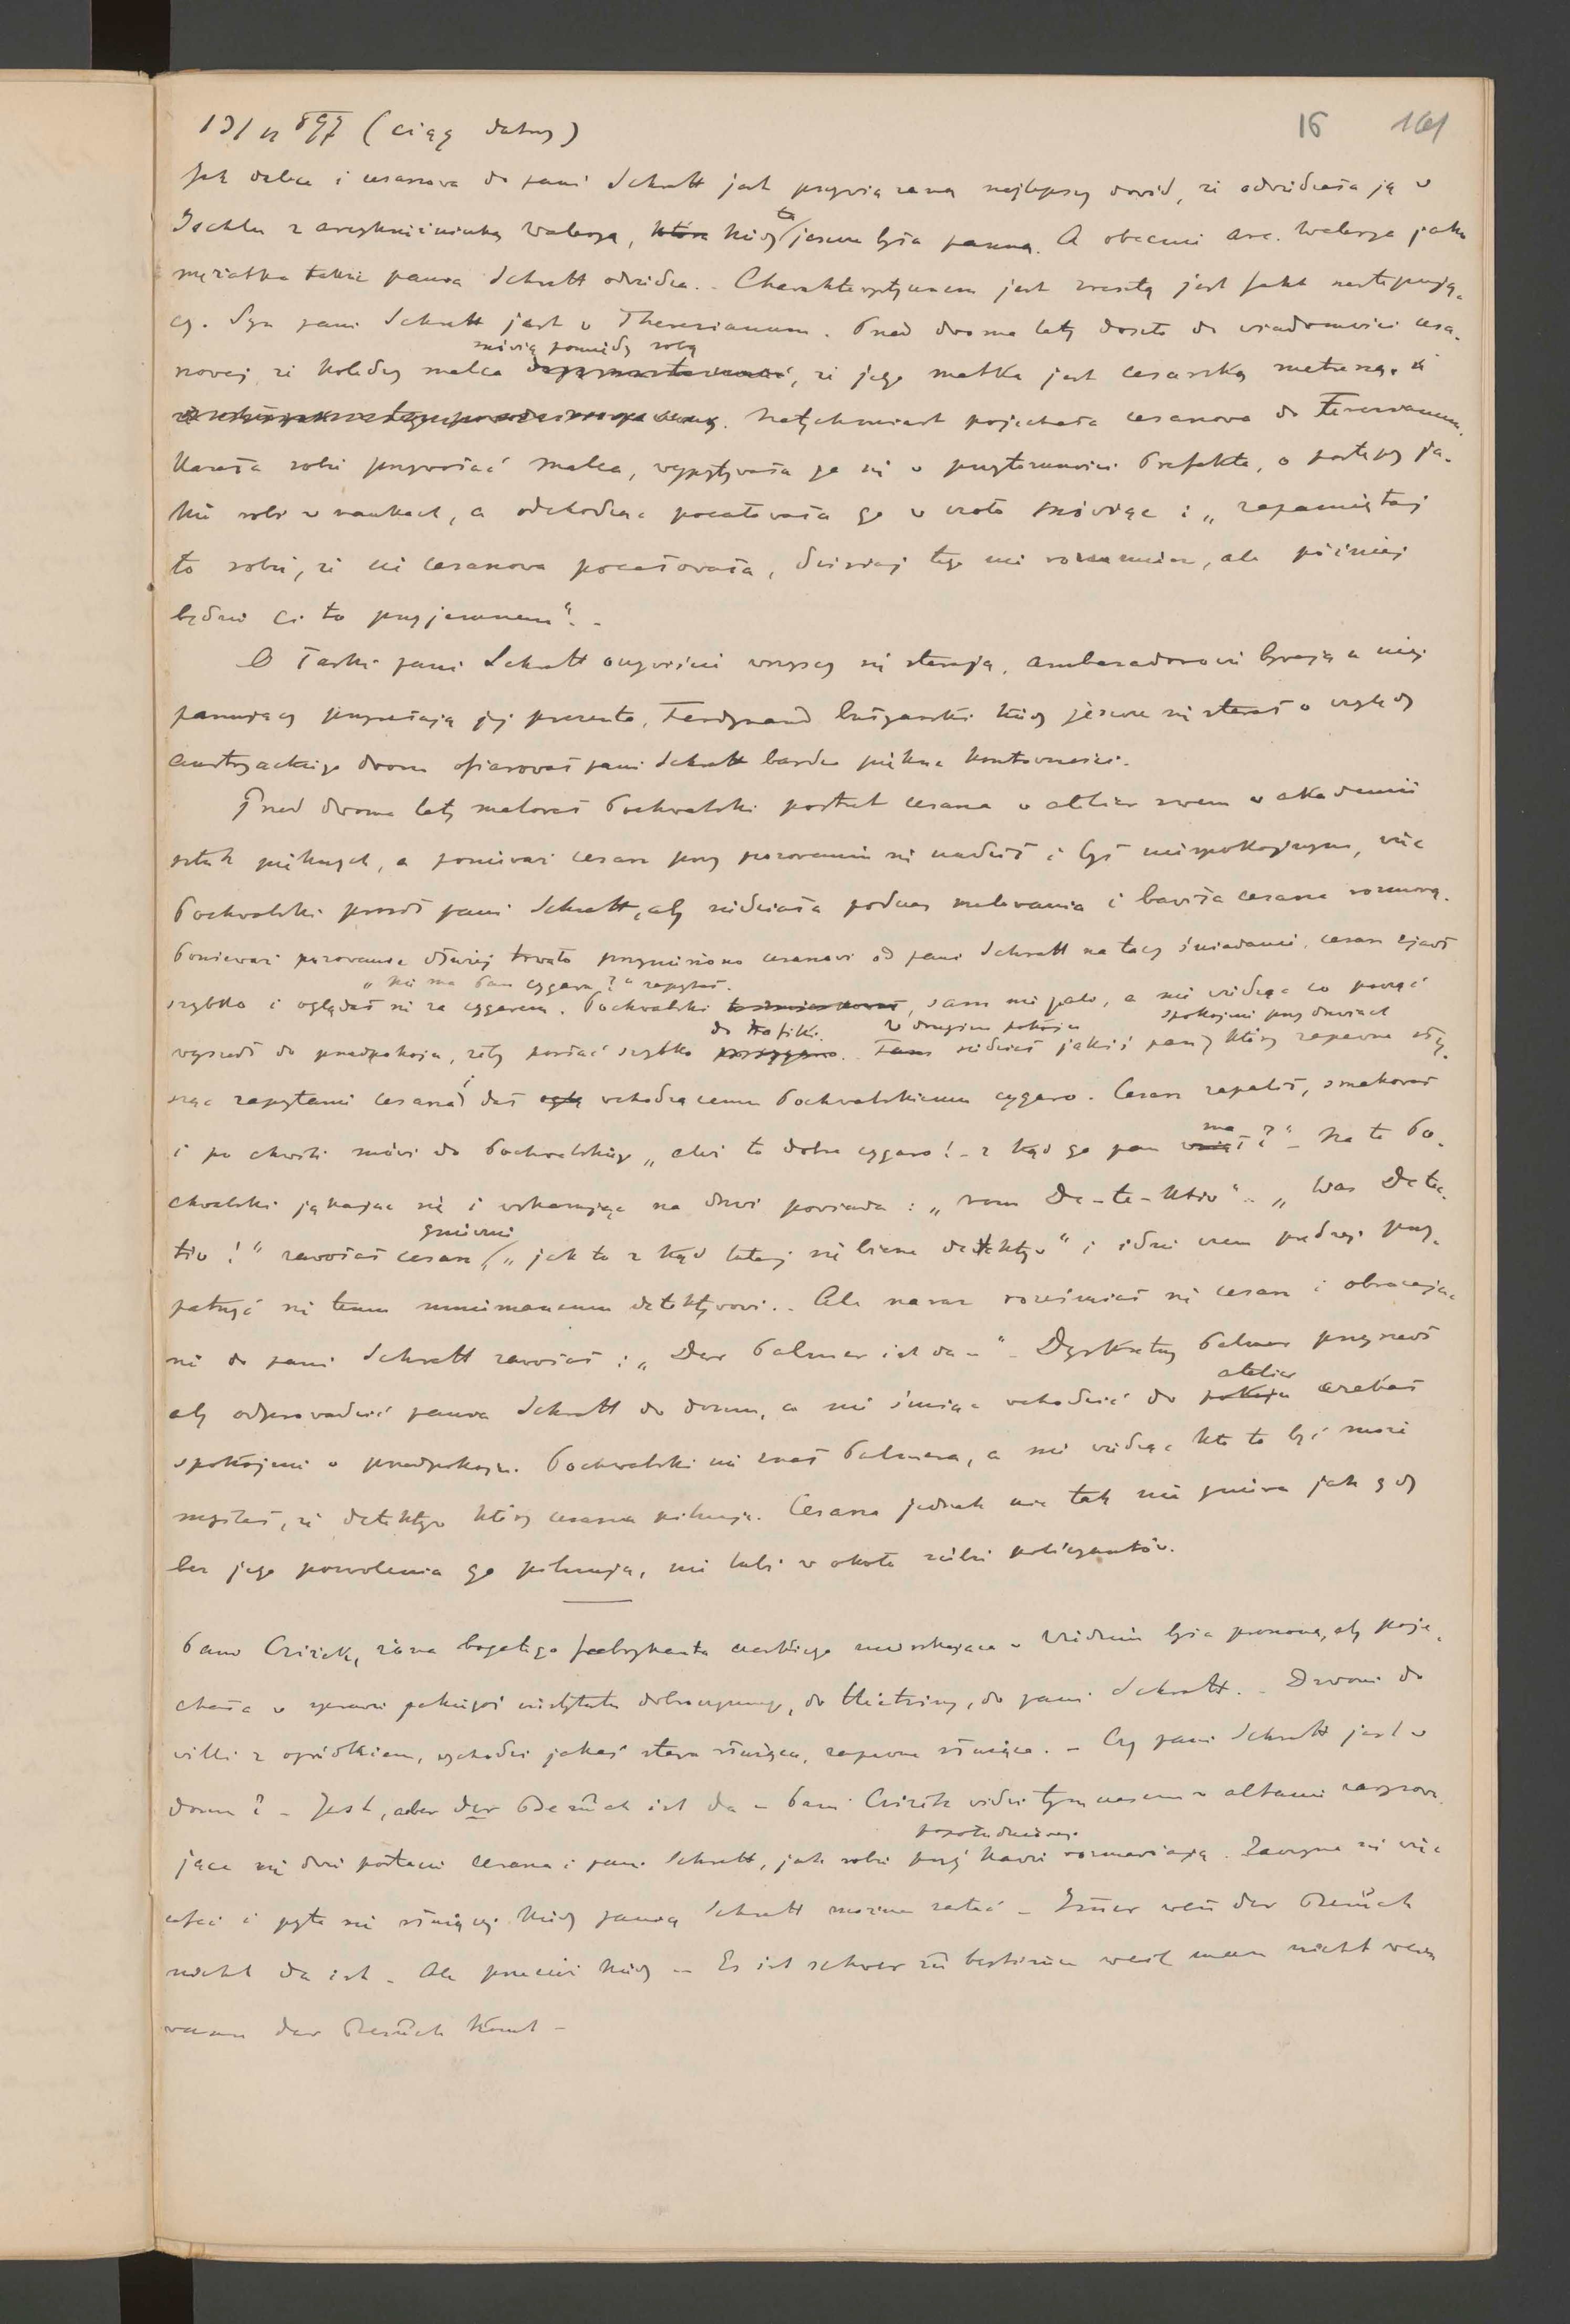 13/VI 897 (ciąg dalszy) 16 161
Jak dalece i cesarzowa do pani Schratt jest przywiązaną najlepszy dowód, że odwidzała ją w
Ischlu z arcyksiężniczką Waleryą, która kiedy ta jeszcze była panną. A obecnie arc. Walerya jako
mężatka także panią Schratt odwidza. - Charakterystycznem jest zresztą jest fakt następują-
cy. Syn pani Schratt jest w Theresianum. Przed dwoma laty doszło do wiadomości cesa-
mówią pomiędzy sobą
rzowej, że koledzy malca, że jego matka jest cesarską metresą. i
Natychmiast pojechała cesarzowa do Teresianum.
Kazała sobie przywołać malca, wypytywała go się w przytomności Prefekta, o postępy ja-
kie robi w naukach, a odchodząc pocałowała go w czoło mówiąc: „zapamiętaj
to sobie, że cię cesarzowa pocałowała, dzisiaj tego nie rozumiesz, ale później
będzie ci to przyjemnem". -
O łaski pani Schratt oczywiście wszyscy się starają, ambasadorowie bywają u niej
panujący przysełają jej prezenta, Ferdynand bułgarski kiedy jeszcze się starał o względy
austryackiego dworu ofiarował pani Schratt bardzo piękne kosztowności.
Przed dwoma laty malował Pochwalski portret cesarza w atelier swem w akademii
sztuk pięknych, a ponieważ cesarz przy pozowaniu się nudził i był niespokojnym, więc
Pochwalski prosił pani Schratt, aby siedziała podczas malowania i bawiła cesarza rozmową.
Ponieważ pozowanie dłużej trwało przyniesiono cesarzowi od pani Schratt na tacy śniadanie, cesarz zjadł
„Nie ma Pan cygara?" zapytał.
szybko i oglądał się za cygarem. Pochwalski, sam nie pali, a nie widząc co począć
do trafiki. w drugim pokoju spokojnie przy drzwiach
wyszedł do przedpokoju, żeby posłać szybko. Tam siedział jakiś pan, który zapewne sły-
sząc zapytanie cesarza i dał wchodzącemu Pochwalskiemu cygaro. Cesarz zapalił, smakował
ma
i po chwili mówi do Pochwalskiego „ależ to dobre cygaro! - z kąd go pan wziął?" - Na to Po-
chwalski jąkając się i wskazując na drzwi powiada: „vom De-te-ktiv" - „Was Detec-
gniewnie
tiv!" zawołał cesarz, „jak to z kąd tutaj się bierze detektyw" i idzie czem prędzej przy-
patrzyć się temu mniemanemu detektywowi. - Ale naraz rozśmiał się cesarz i obracając
się do pani Schratt zawołał: „Der Palmer ist da -" - Dyskretny Palmer przyszedł
atelier
aby odprowadzić panią Schratt do domu, a nie śmiąc wchodzić do pokoju czekał
spokojnie w przedpokoju. Pochwalski nie znał Palmera, a nie widząc kto to być może
myślał, że detektyw który cesarza pilnuje. Cesarza jednak nic tak nie gniewa jak gdy
bez jego pozwolenia go pilnują, nie lubi w około siebie policyantów.
Pani Cziżek, żona bogatego fabrykanta czeskiego mieszkająca w Widniu była proszoną, aby poje-
chała w sprawie jakiegoś instytutu dobroczynnego, do Hietzing, do pani Schratt. - Dzwoni do
willi z ogródkiem, wychodzi jakaś stara służąca, zapewne służąca. - Czy pani Schratt jest w
domu? - Jest, aber der Besuch ist da - Pani Cziżek widzi tymczasem w altanie
popołudniowej
jące się dwie postacie cesarza i pani Schratt, jak sobie przy kawie rozmawiają. Zaczyna się więc
cofać i pyta się służącej kiedy panią Schratt można zastać - Immer wen der Besuch
nicht da ist - Ale przecież kiedy - Es ist schwer zu bestimen weil man nicht weis
wann der Besuch komt -